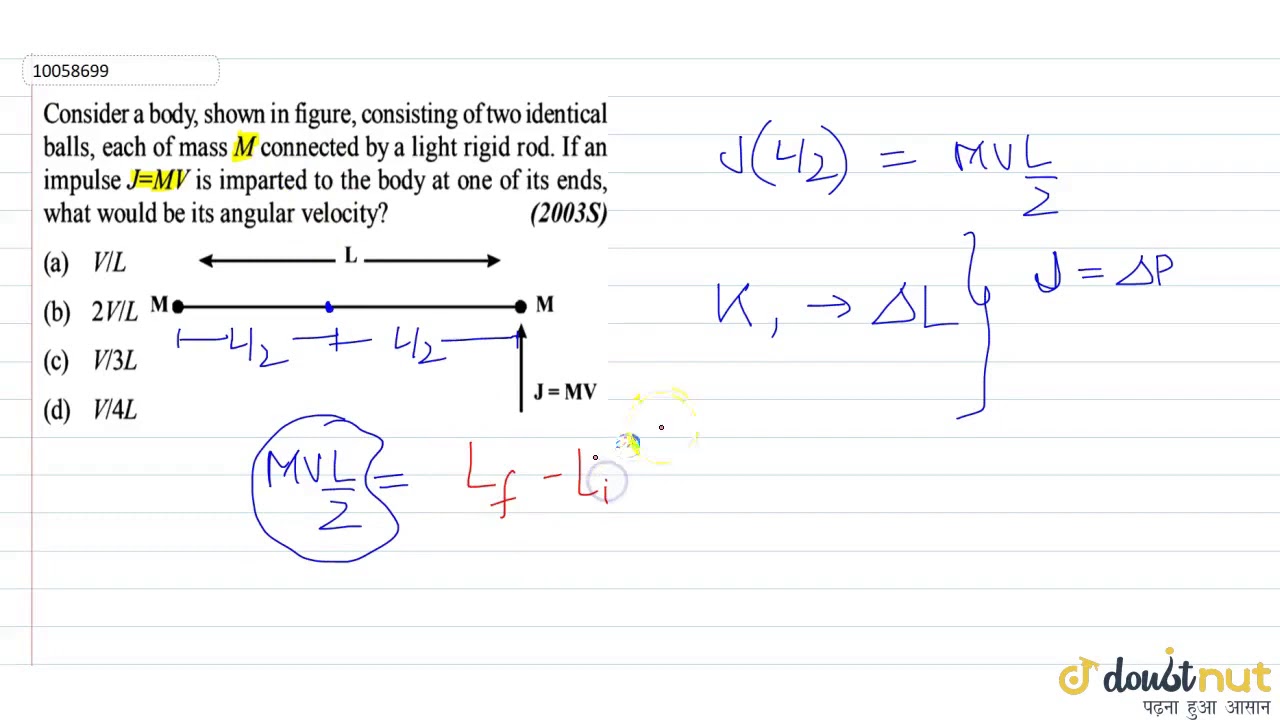 10058699
Consider a body, shown in figure, consisting of two identical
balls, each of mass M connected by a light rigid rod. If an
impulse J=MV is imparted to the body at one of its ends,
what would be its angular velocity? (2003S)
(a) V/L
(b) 2V/L
(c) V/3L
(d) V/4L
L
M M
L/2 L/2
J = MV
J(L/2) = MVL/2
K, → ΔL } J = ΔP
MVL/2 = Lf - Li
doubtnut
पढ़ना हुआ आसान